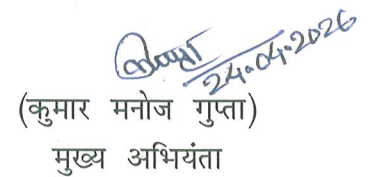 24.04.2026
(कुमार मनोज गुप्ता)
मुख्य अभियंता